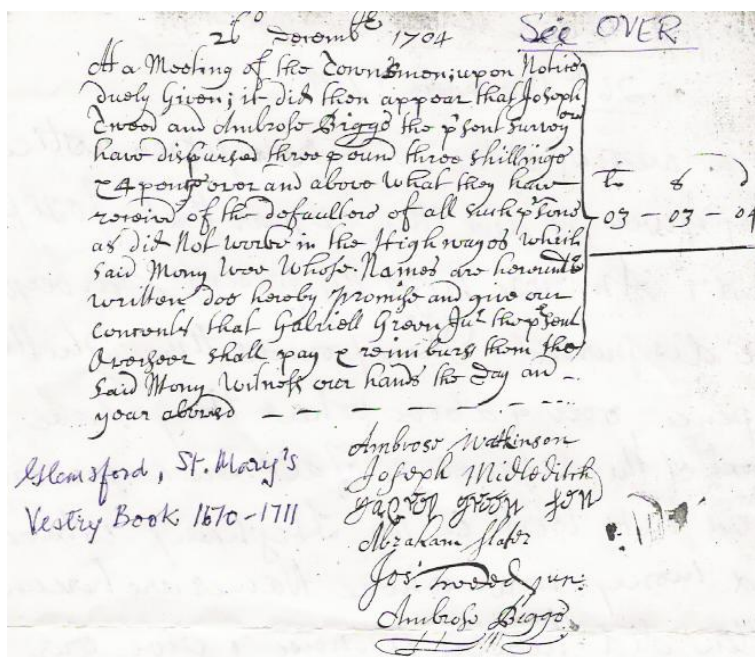 26º Decembʳ 1704
See OVER
At a Meeting of the Townsmen; upon Notice
duely Given; it did then appear that Joseph
Tweed and Ambrose Biggs the pʳsent Survoyᵒʳˢ
have disbursed three pound three shillings
& 4 pence over and above what they have
received of the defaulters of all such pʳsons
as did Not worke in the Highwayes which
Said Mony wee whose Names are hereunto
written doe hereby promise and give our
Concents that Gabriell Green Juʳ the pʳsent
Overseer shall pay & reimburs them the
Said Mony witness our hands the Day and
year abovesd
L S D
03 - 03 - 04
Ambrose Watkinson
Joseph Midleditch
green sen
Abraham Slater
Jos: Tweed Jun:
Ambrose Biggs
Glemsford, St. Mary's
Vestry Book 1670-1711